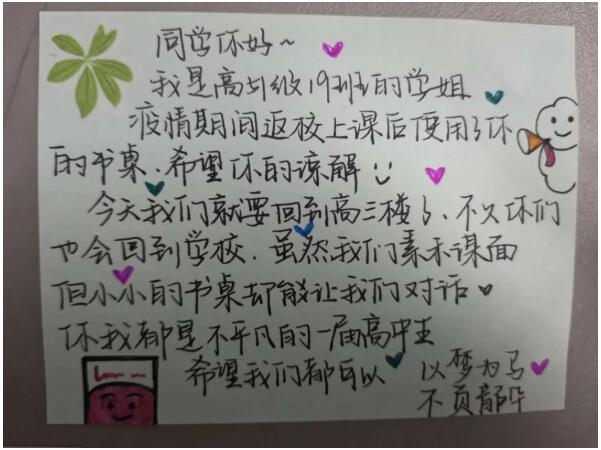 同学你好~
我是高51级19班的学姐
疫情期间返校上课后使用了你
的书桌、希望你的谅解
今天我们就要回到高三楼了、不久你们
也会回到学校、虽然我们素未谋面
但小小的书桌却能让我们对话
你我都是不平凡的一届高中生
希望我们都可以
以梦为马
不负韶华